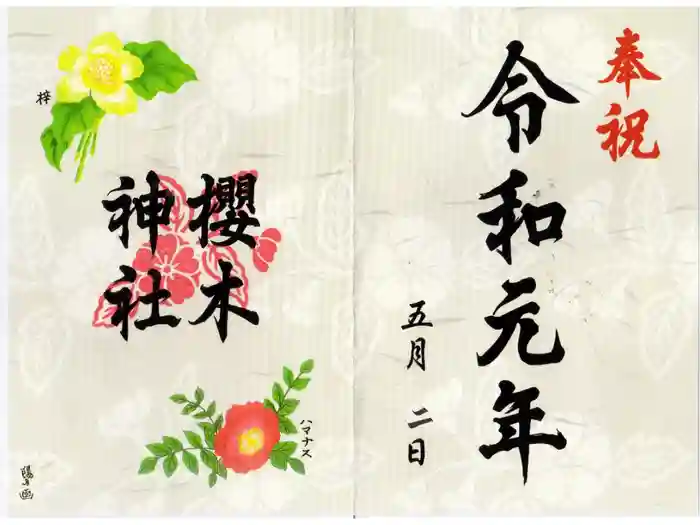 奉祝
令和元年
五月 二日
櫻木
神社
梓
ハマナス